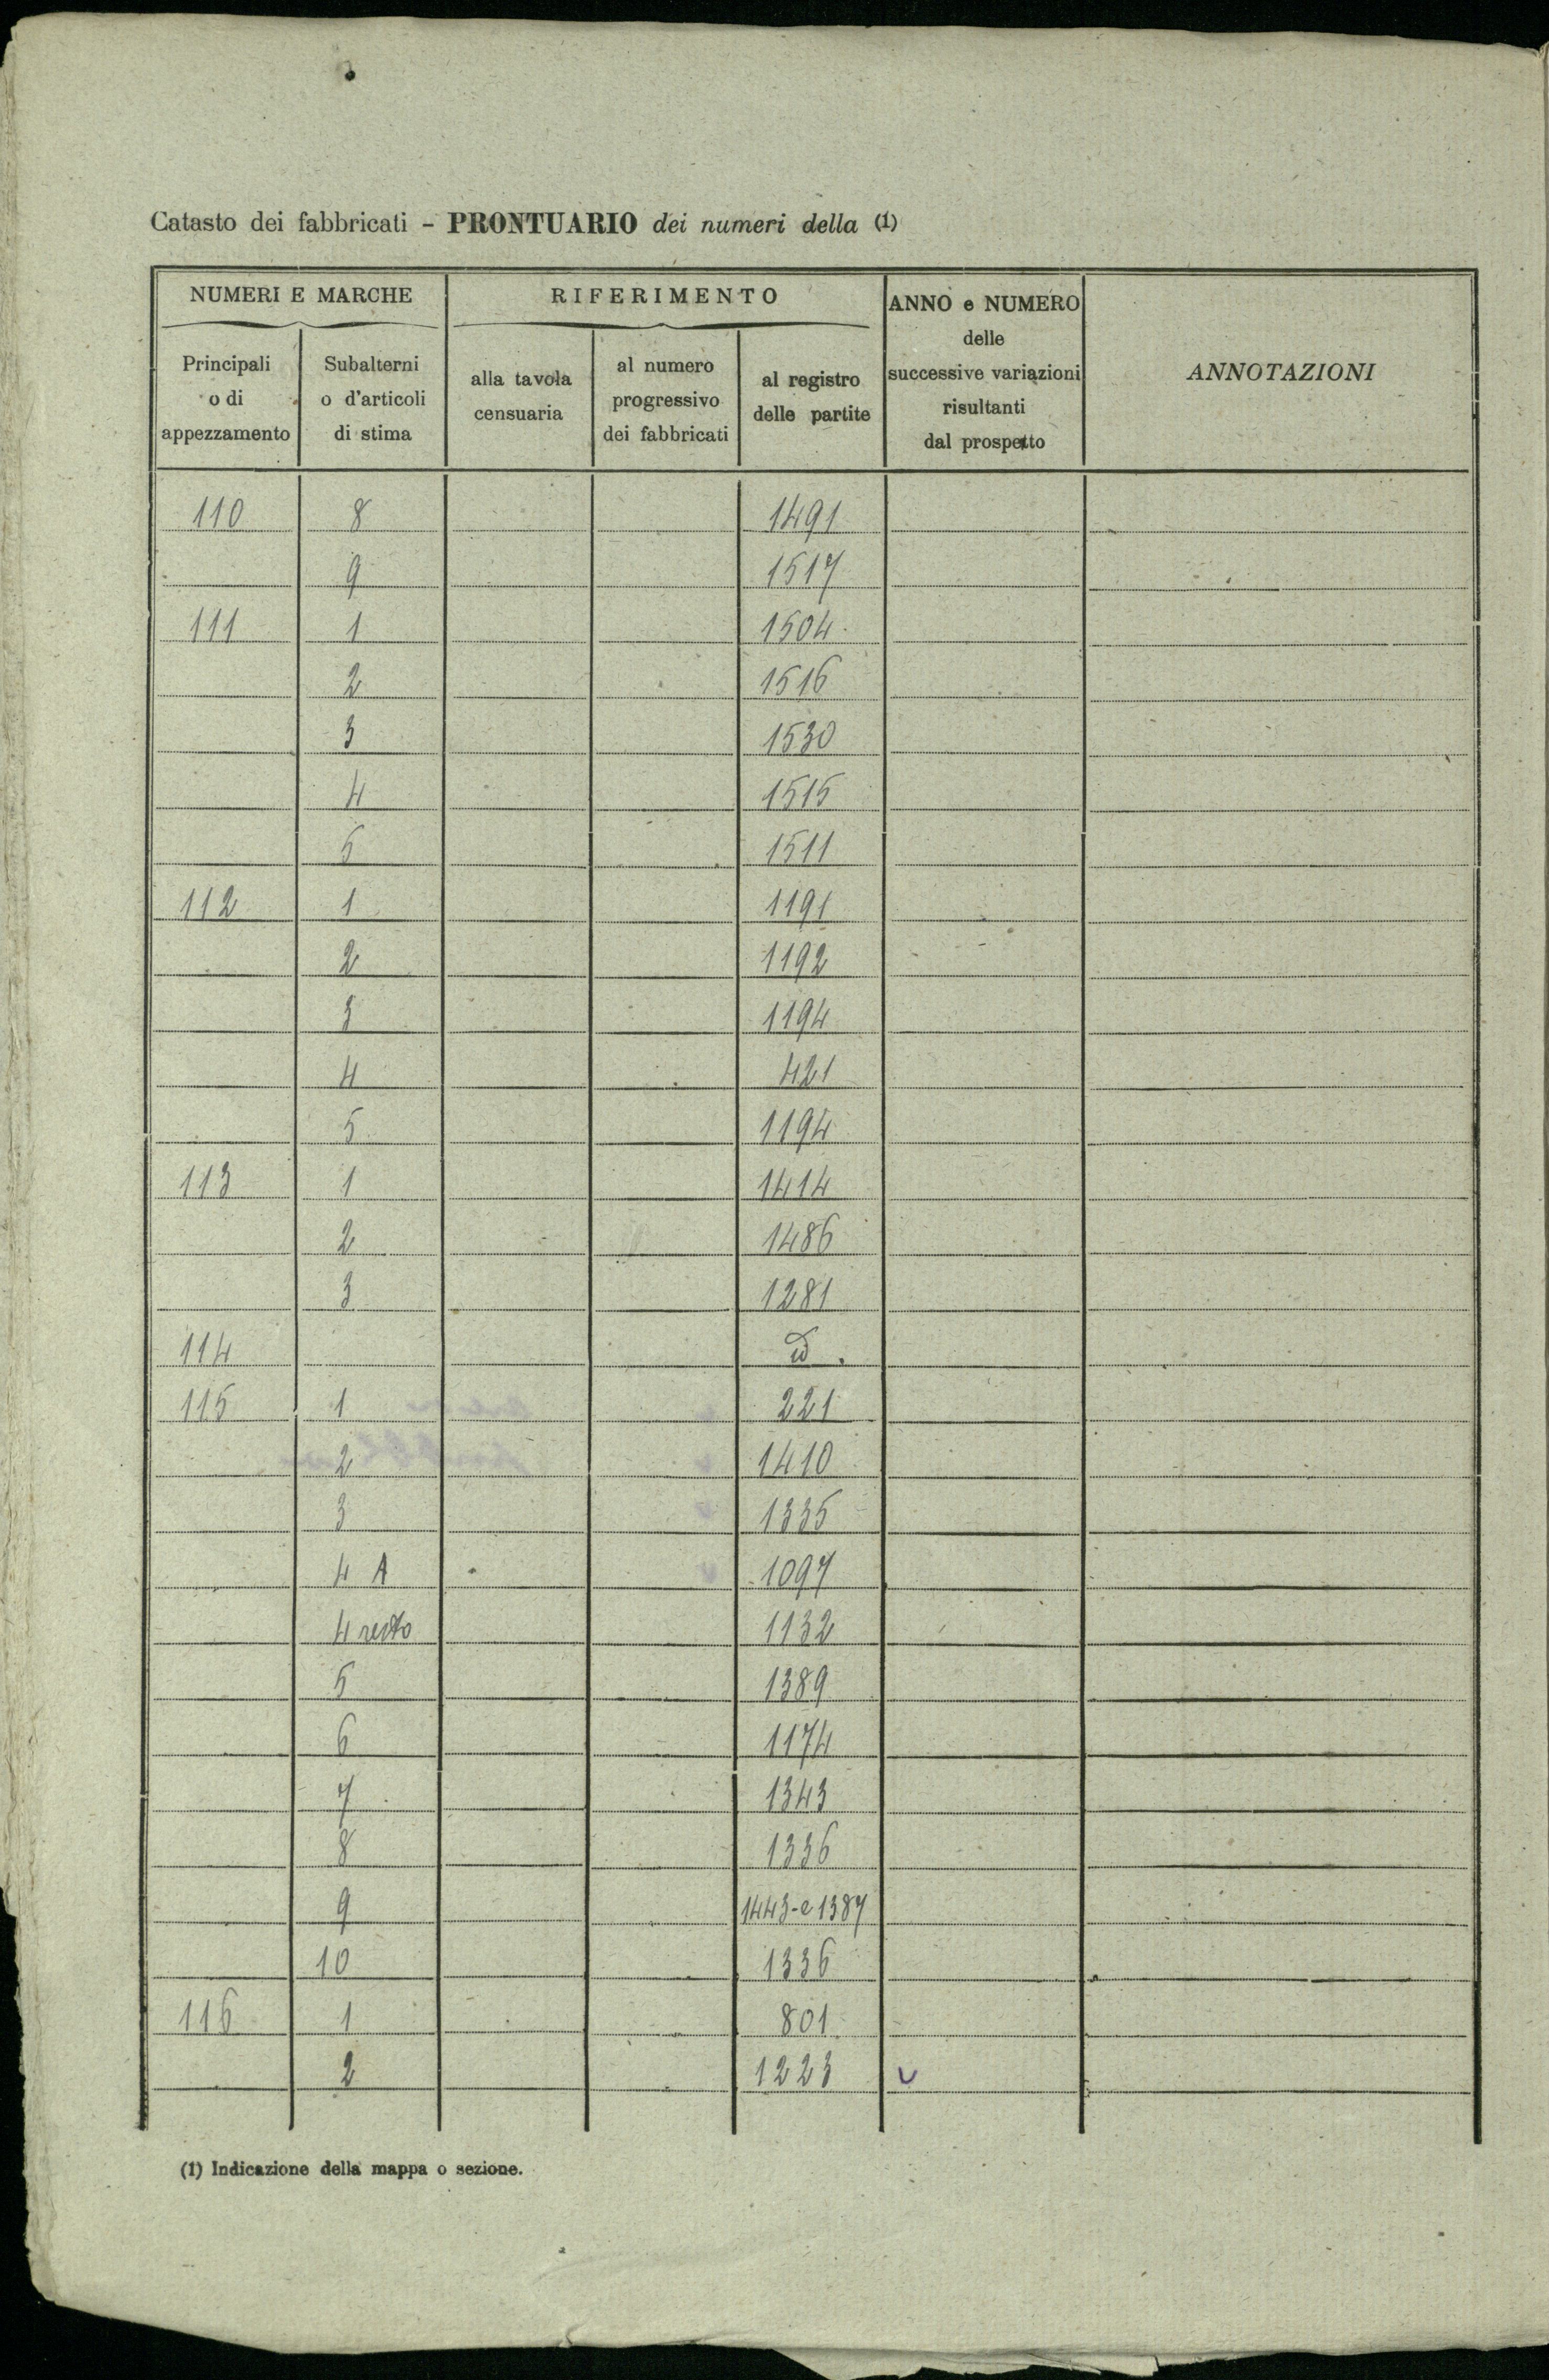 Catasto dei fabbricati - PRONTUARIO dei numeri della (1)
NUMERI E MARCHE
RIFERIMENTO
ANNO e NUMERO
delle
successive variazioni
risultanti
dal prospetto
ANNOTAZIONI
Principali
o di
appezzamento
Subalterni
o d'articoli
di stima
alla tavola
censuaria
al numero
progressivo
dei fabbricati
al registro
delle partite
110 8 1491
9 1517
111 1 1504
2 1516
3 1530
4 1515
5 1511
112 1 1191
2 1192
3 1194
4 421
5 1194
113 1 1414
2 1486
3 1281
114 id.
115 1 221
2 1410
3 1335
4 A 1097
4 resto 1132
5 1389
6 1174
7 1343
8 1336
9 1443-e 1387
10 1336
116 1 801
2 1223 v
(1) Indicazione della mappa o sezione.